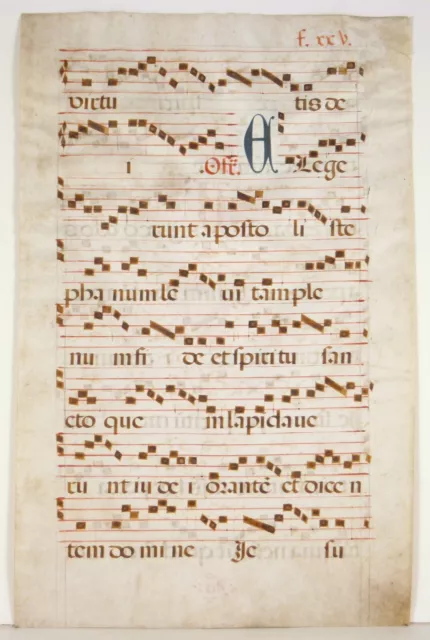 f. xxv.
virtu tis de
i Off. E Lege
runt aposto li ste
pha num le ui tam ple
num im fi de et spiritu san
cto que m lapidaue
ru nt iu de i orantē et dicen
tem do mi ne Je su